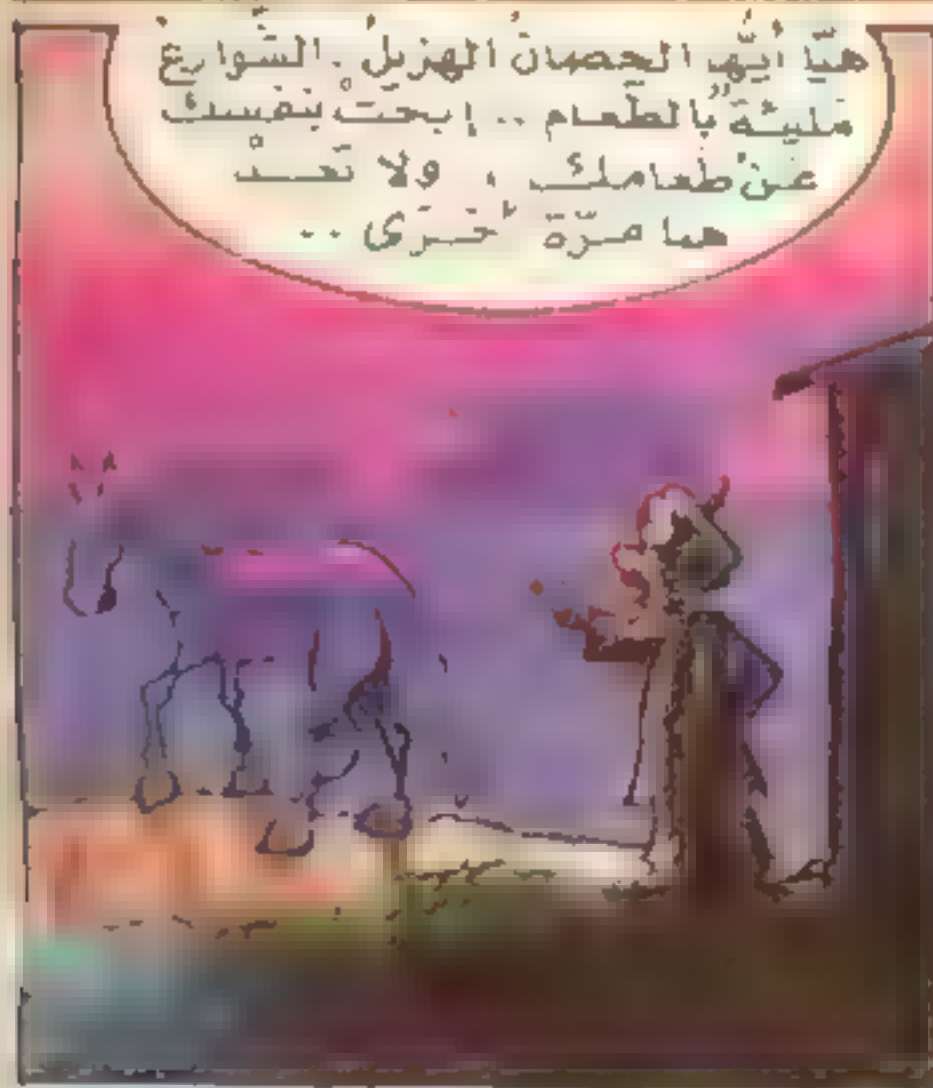 هيّا أيّها الحصانُ الهزيلُ . الشّوارعُ
مليئةٌ بالطّعام .. إبحثْ بنفسك
عنْ طعامك ، ولا تعُـدْ
هنا مرّة أخرى ..